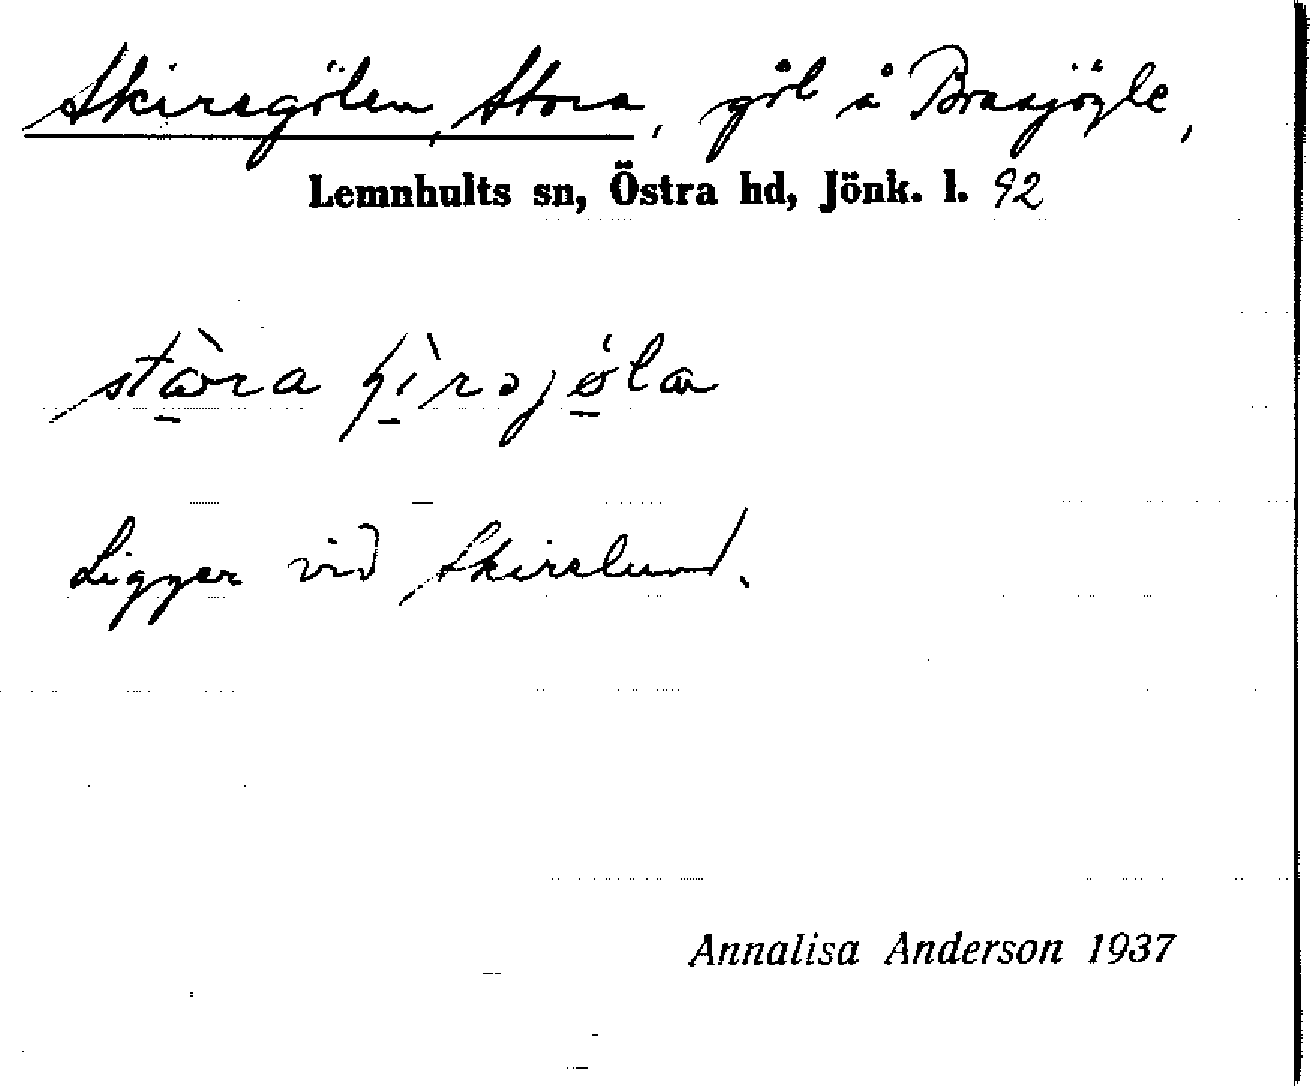 Skirsgölen, Stora, göl å Brasjögle,
Lemnhults sn, Östra hd, Jönk. l. 92
Ligger vid Skirslund.
Annalisa Anderson 1937